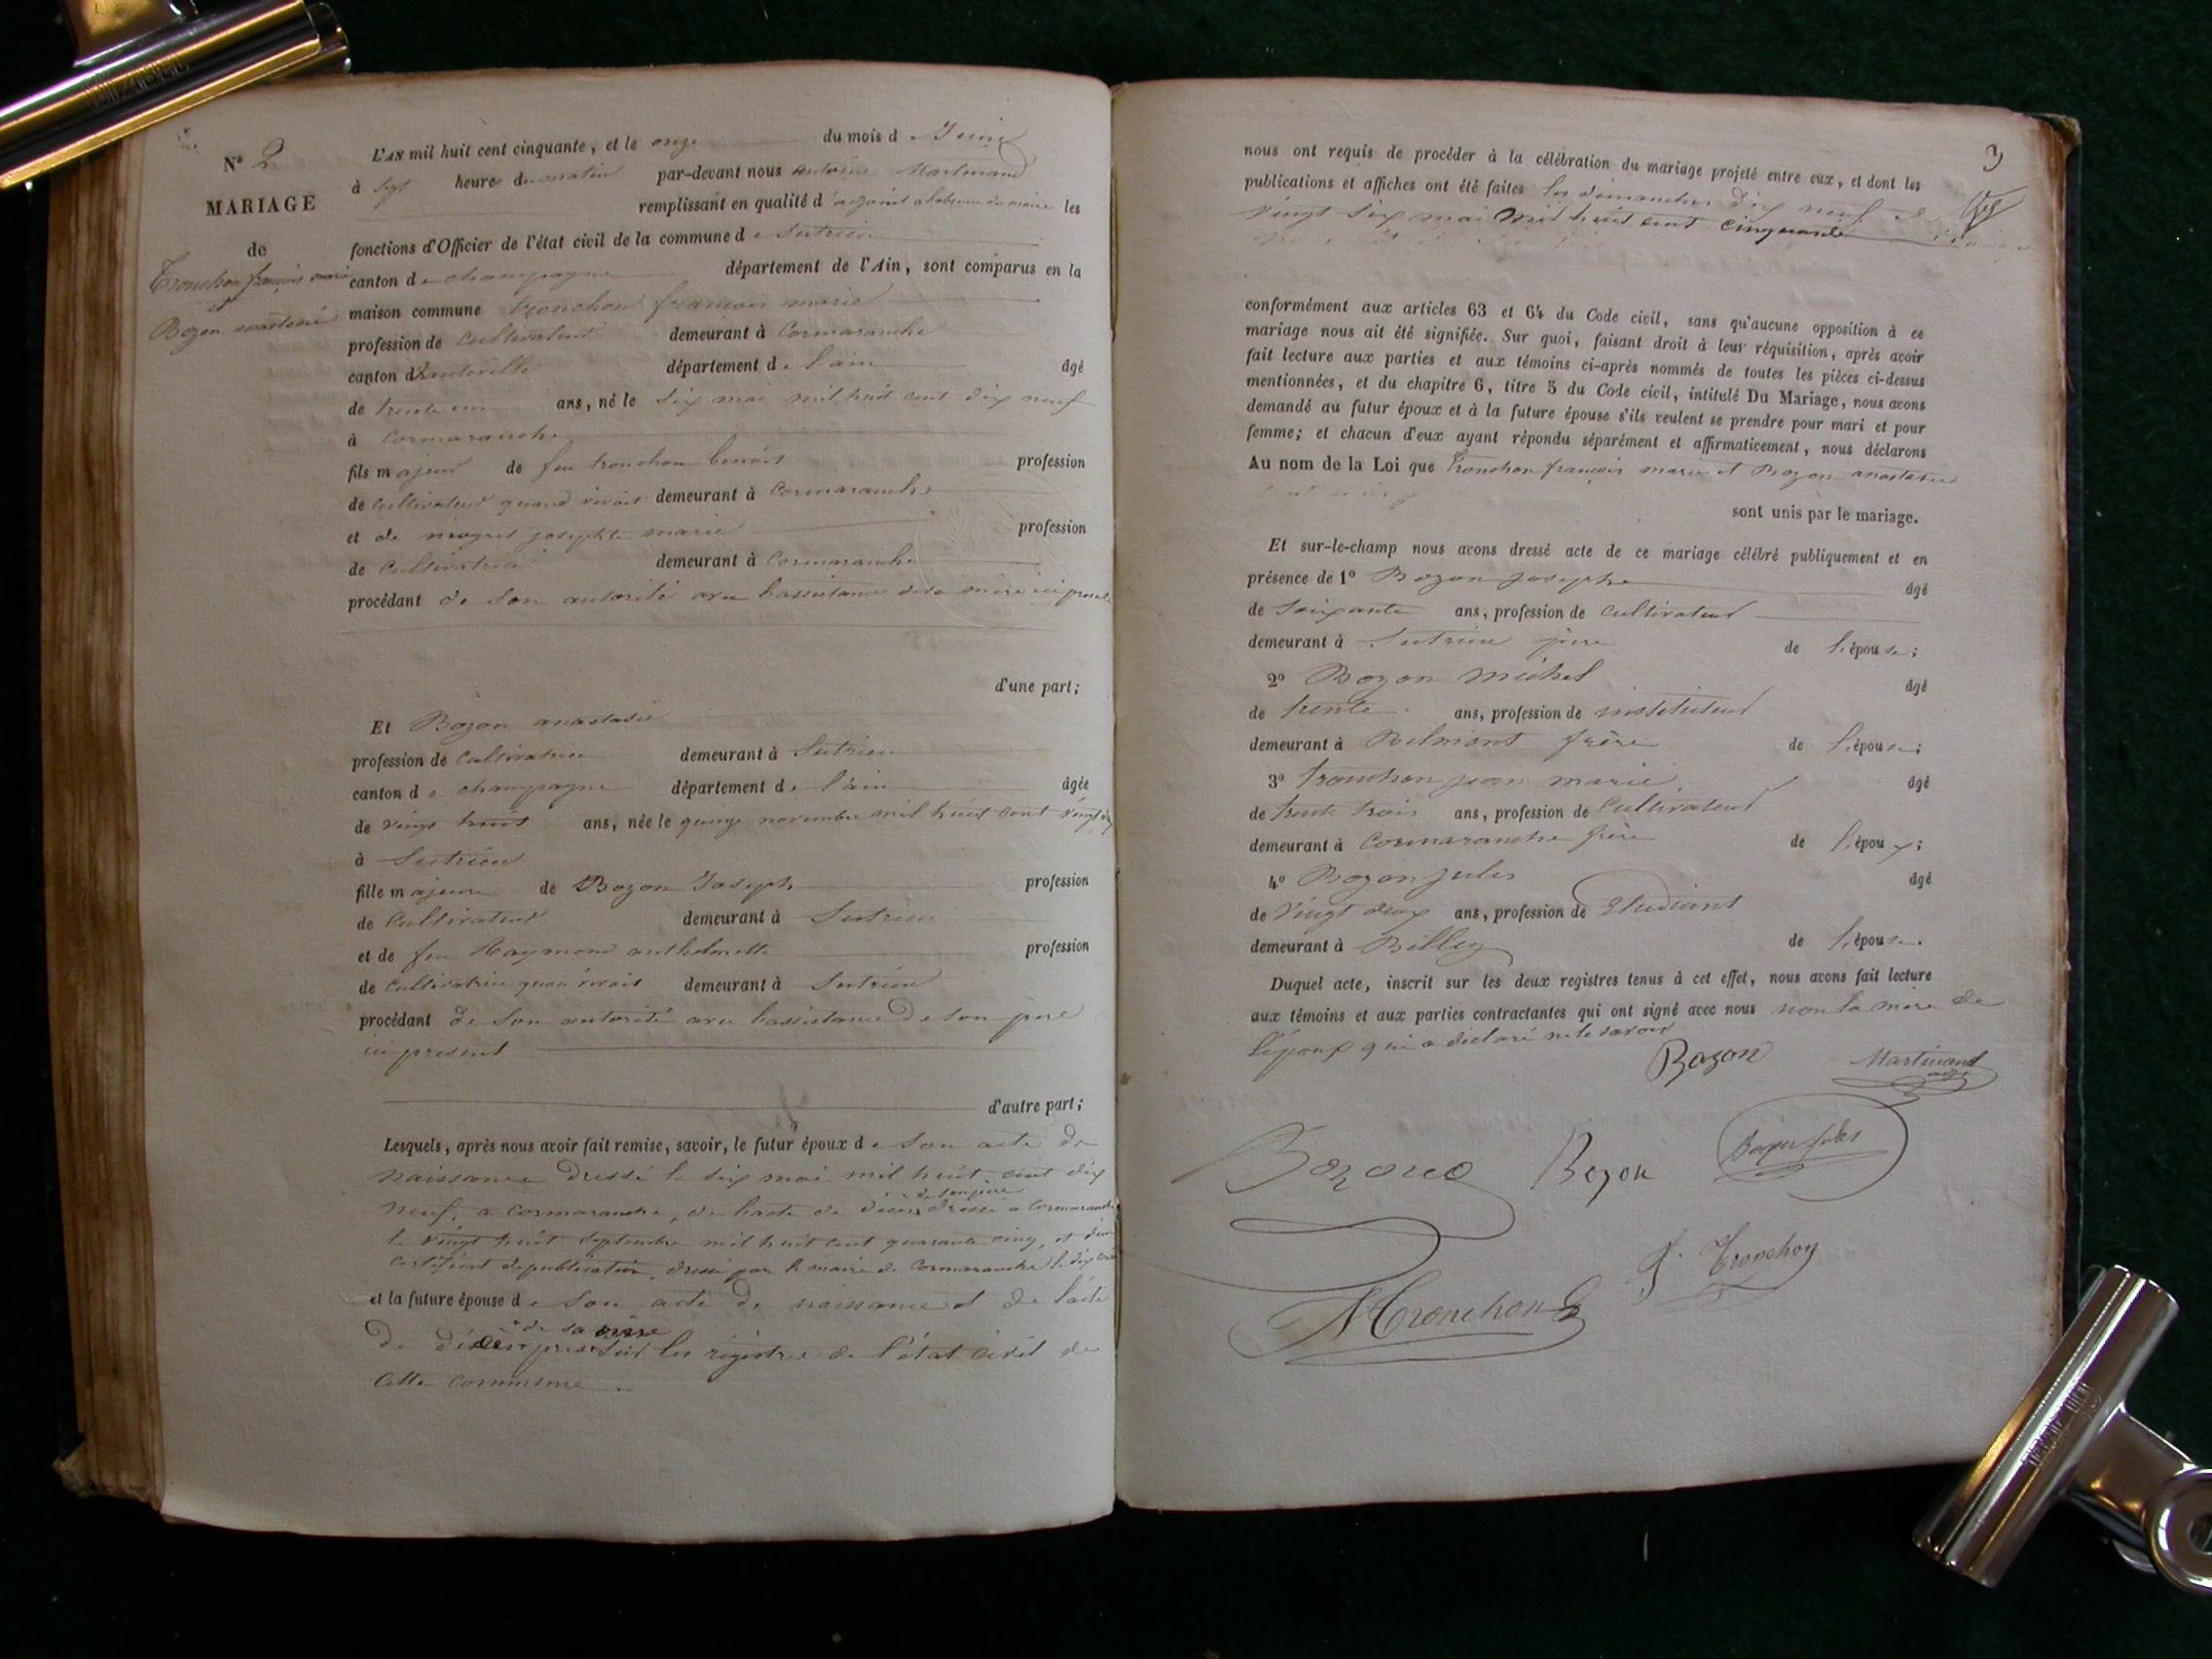 N° 2
MARIAGE
de
Tronchon françois marie
et
Bozon anastasie
L'AN mil huit cent cinquante, et le onze du mois de Juin
à sept heures du matin par-devant nous antoine Martinand
remplissant en qualité d'adjoint les
fonctions d'Officier de l'état civil de la commune de Sutrieu
canton de champagne département de l'Ain, sont comparus en la
maison commune tronchon françois marie
profession de cultivateur demeurant à Cormaranche
canton d'hauteville département de l'ain âgé
de trente un ans, né le six mai mil huit cent dix neuf
à Cormaranche
fils majeur de feu tronchon benoît profession
de cultivateur quand vivait demeurant à Cormaranche
et de josephte marie profession
de cultivatrice demeurant à Cormaranche
procédant de son autorité avec l'assistance de sa mère ici présente
d'une part;
Et Bozon anastasie
profession de cultivatrice demeurant à Sutrieu
canton de champagne département de l'ain âgée
de vingt huit ans, née le quinze novembre mil huit cent vingt
à Sutrieu
fille majeure de Bozon Joseph profession
de Cultivateur demeurant à Sutrieu
et de feu Raymond anthelmette profession
de cultivatrice quand vivait demeurant à Sutrieu
procédant de son autorité avec l'assistance de son père
ici présent
d'autre part;
Lesquels, après nous avoir fait remise, savoir, le futur époux de son acte de
naissance dressé le six mai mil huit cent dix
neuf, à cormaranche, de l'acte de décès de son père dressé à Cormaranche
le vingt huit septembre mil huit cent quarante cinq, et d'un
certificat de publication, dressé par le maire de Cormaranche le dix
et la future épouse de son acte de naissance et de l'acte
de décès de sa mère pris sur les registres de l'état civil de
cette commune
3
nous ont requis de procéder à la célébration du mariage projeté entre eux, et dont les
publications et affiches ont été faites les dimanches dix neuf et
vingt six mai mil huit cent cinquante
conformément aux articles 63 et 64 du Code civil, sans qu'aucune opposition à ce
mariage nous ait été signifiée. Sur quoi, faisant droit à leur réquisition, après avoir
fait lecture aux parties et aux témoins ci-après nommés de toutes les pièces ci-dessus
mentionnées, et du chapitre 6, titre 5 du Code civil, intitulé Du Mariage, nous avons
demandé au futur époux et à la future épouse s'ils veulent se prendre pour mari et pour
femme; et chacun d'eux ayant répondu séparément et affirmativement, nous déclarons
Au nom de la Loi que tronchon françois marie et Bozon anastasie
sont unis par le mariage.
Et sur-le-champ nous avons dressé acte de ce mariage célébré publiquement et en
présence de 1° Bozon josephe âgé
de soixante ans, profession de cultivateur
demeurant à Sutrieu père de l'épouse;
2° Bozon michel âgé
de trente ans, profession de instituteur
demeurant à Belmont frère de l'épouse;
3° tronchon jean marie âgé
de trente trois ans, profession de Cultivateur
demeurant à Cormaranche frère de l'époux;
4° Bozon jules âgé
de vingt deux ans, profession de Etudiant
demeurant à Belley de l'épouse.
Duquel acte, inscrit sur les deux registres tenus à cet effet, nous avons fait lecture
aux témoins et aux parties contractantes qui ont signé avec nous non la mère de
l'époux qui a déclaré ne le savoir
Bozon Martinand
Bozon Bozon Bozon jules
f. Tronchon
Tronchon